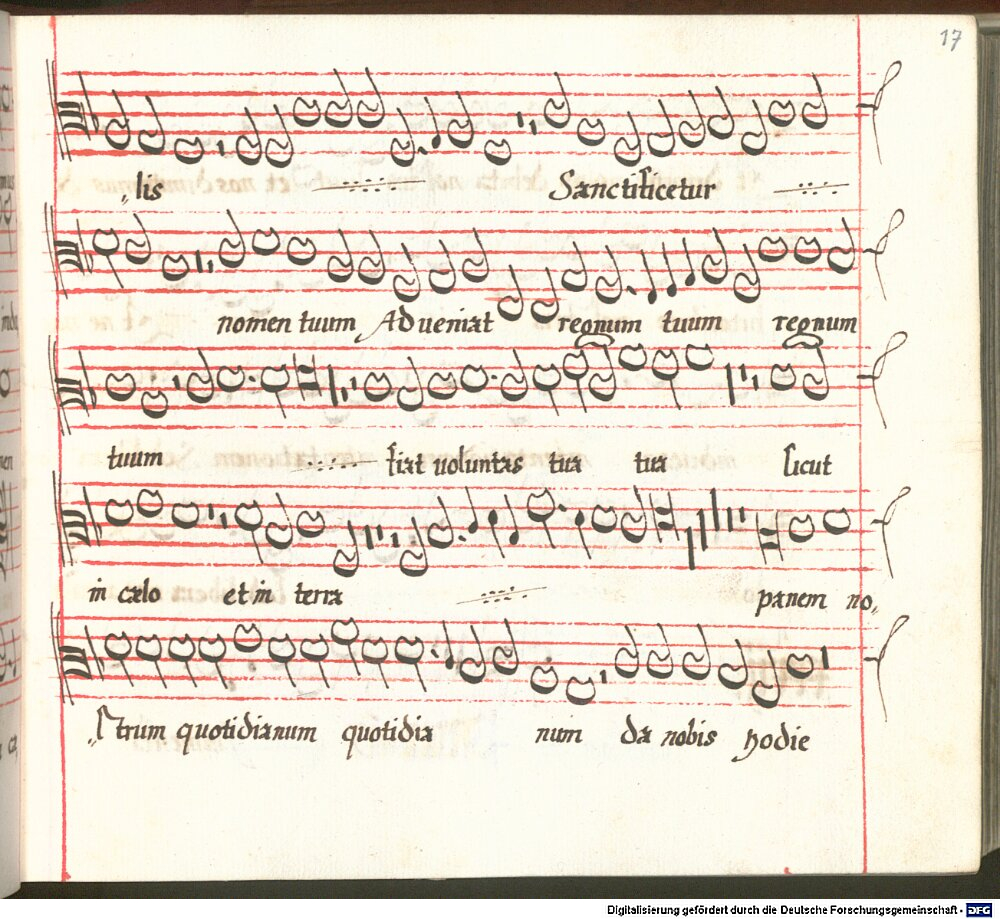 17
„lis Sanctificetur
nomen tuum Adueniat regnum tuum regnum
tuum fiat uoluntas tua tua sicut
in cælo et in terra panem no„
„strum quotidianum quotidia num da nobis hodie
Digitalisierung gefördert durch die Deutsche Forschungsgemeinschaft - DFG